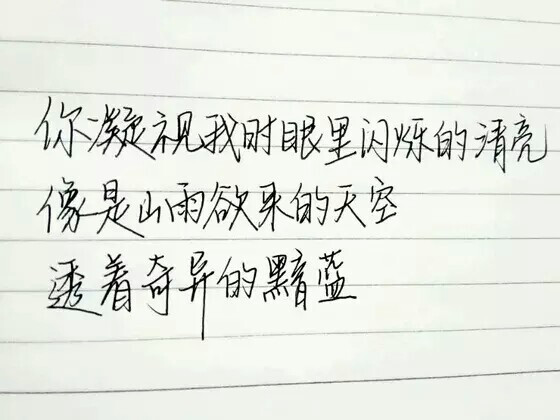 你凝视我时眼里闪烁的清亮
像是山雨欲来的天空
透着奇异的黯蓝